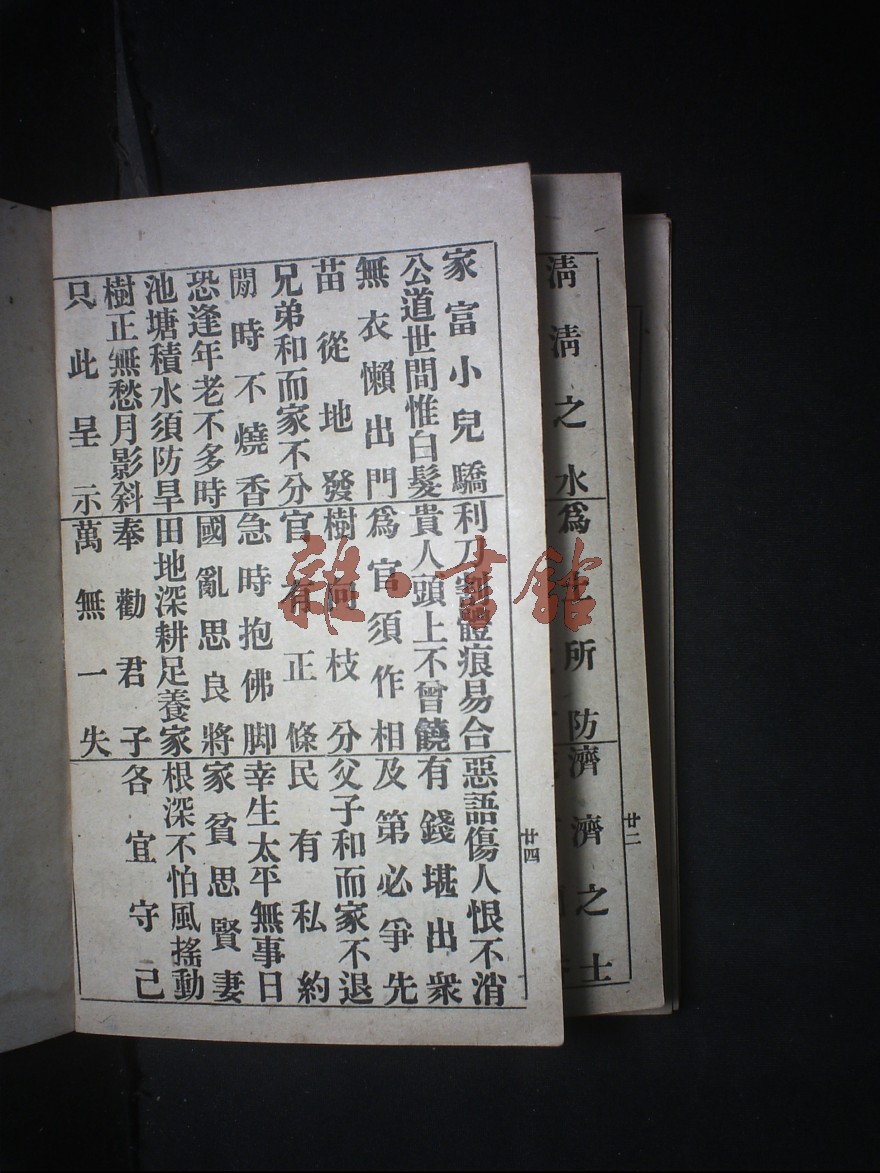 家富小兒驕利刀割體痕易合惡語傷人恨不消
公道世間惟白髮貴人頭上不曾饒有錢堪出衆
無衣懶出門爲官須作相及第必爭先
苗從地發樹向枝分父子和而家不退
兄弟和而家不分官有正條民有私約
閒時不燒香急時抱佛脚幸生太平無事日
恐逢年老不多時國亂思良將家貧思賢妻
池塘積水須防旱田地深耕足養家根深不怕風搖動
樹正無愁月影斜奉勸君子各宜守己
只此呈示萬無一失
廿四
清清之水爲土所防濟濟之士
廿二
雜·書館